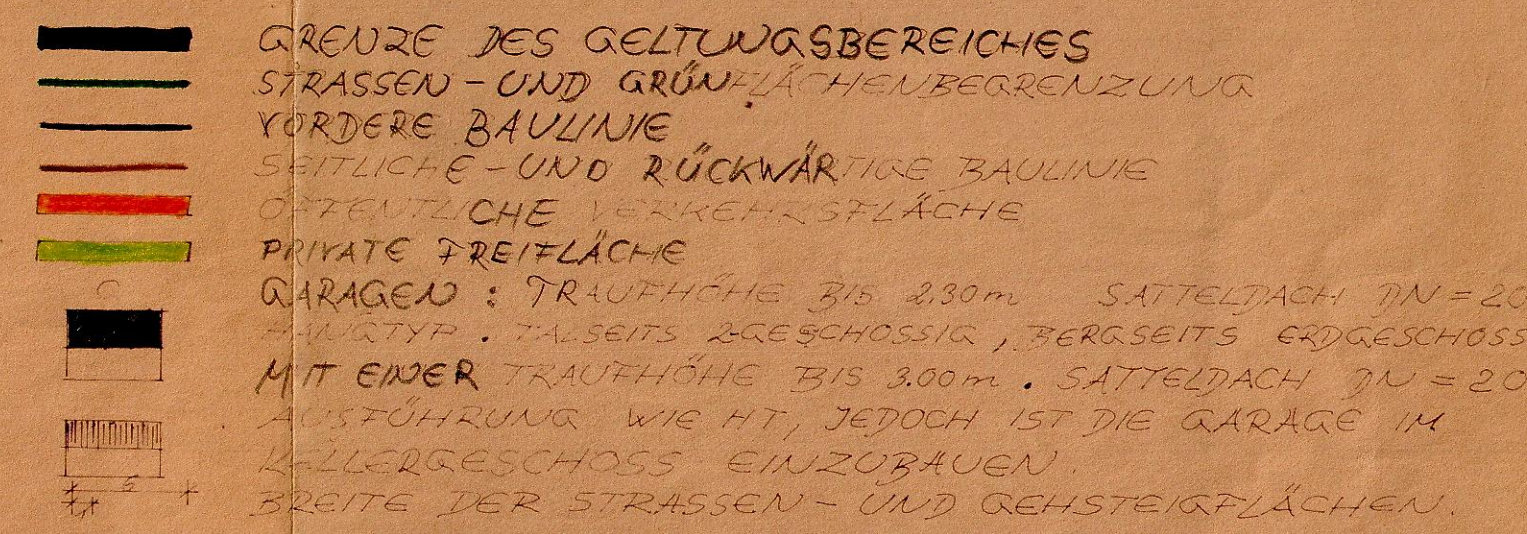 GRENZE DES GELTUNGSBEREICHES
STRASSEN - UND GRÜNFLÄCHENBEGRENZUNG
VORDERE BAULINIE
SEITLICHE - UND RÜCKWÄRTIGE BAULINIE
ÖFFENTLICHE VERKEHRSFLÄCHE
PRIVATE FREIFLÄCHE
GARAGEN : TRAUFHÖHE BIS 2.30m SATTELDACH DN = 20
HANGTYP . TALSEITS 2-GESCHOSSIG , BERGSEITS ERDGESCHOSS
MIT EINER TRAUFHÖHE BIS 3.00m . SATTELDACH DN = 20
AUSFÜHRUNG WIE HT, JEDOCH IST DIE GARAGE IM
KELLERGESCHOSS EINZUBAUEN.
5
BREITE DER STRASSEN - UND GEHSTEIGFLÄCHEN.